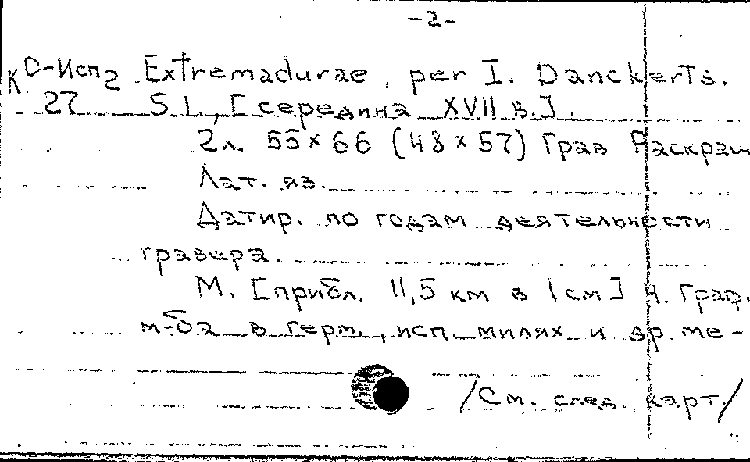 -2-
К О-Исп 2 Extremadurae, per I. Danckerts.
27 S.l., [середина XVII в.].
2л. 55×66 (48×57) Грав Раскраш
Лат. яз.
Датир. по годам деятельности
гравера.
М. [прибл. 11,5 км в 1 см] Ч. Граф.
м-ба в герм., исп. милях и др. ме-
/См. след. карт/